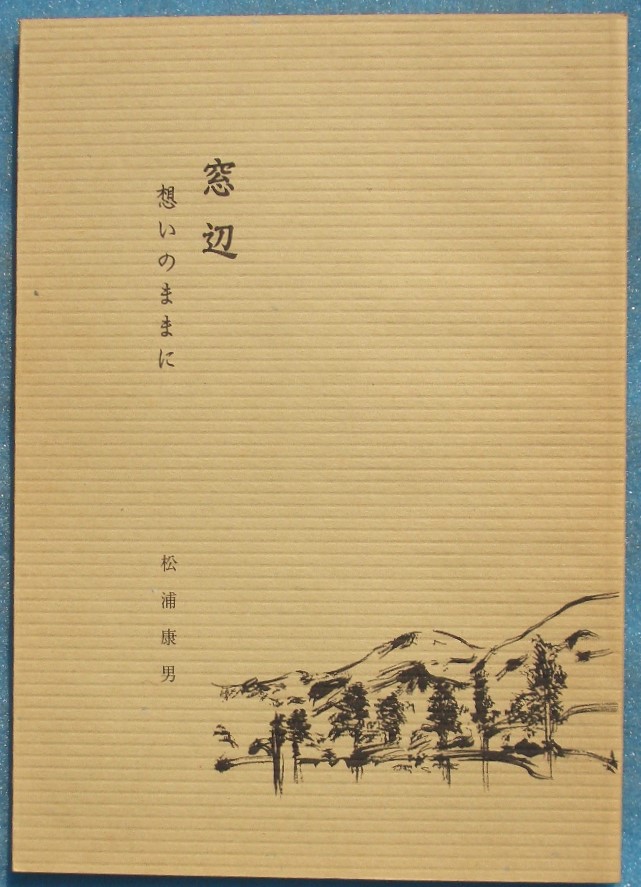 窓辺
想いのままに
松浦康男